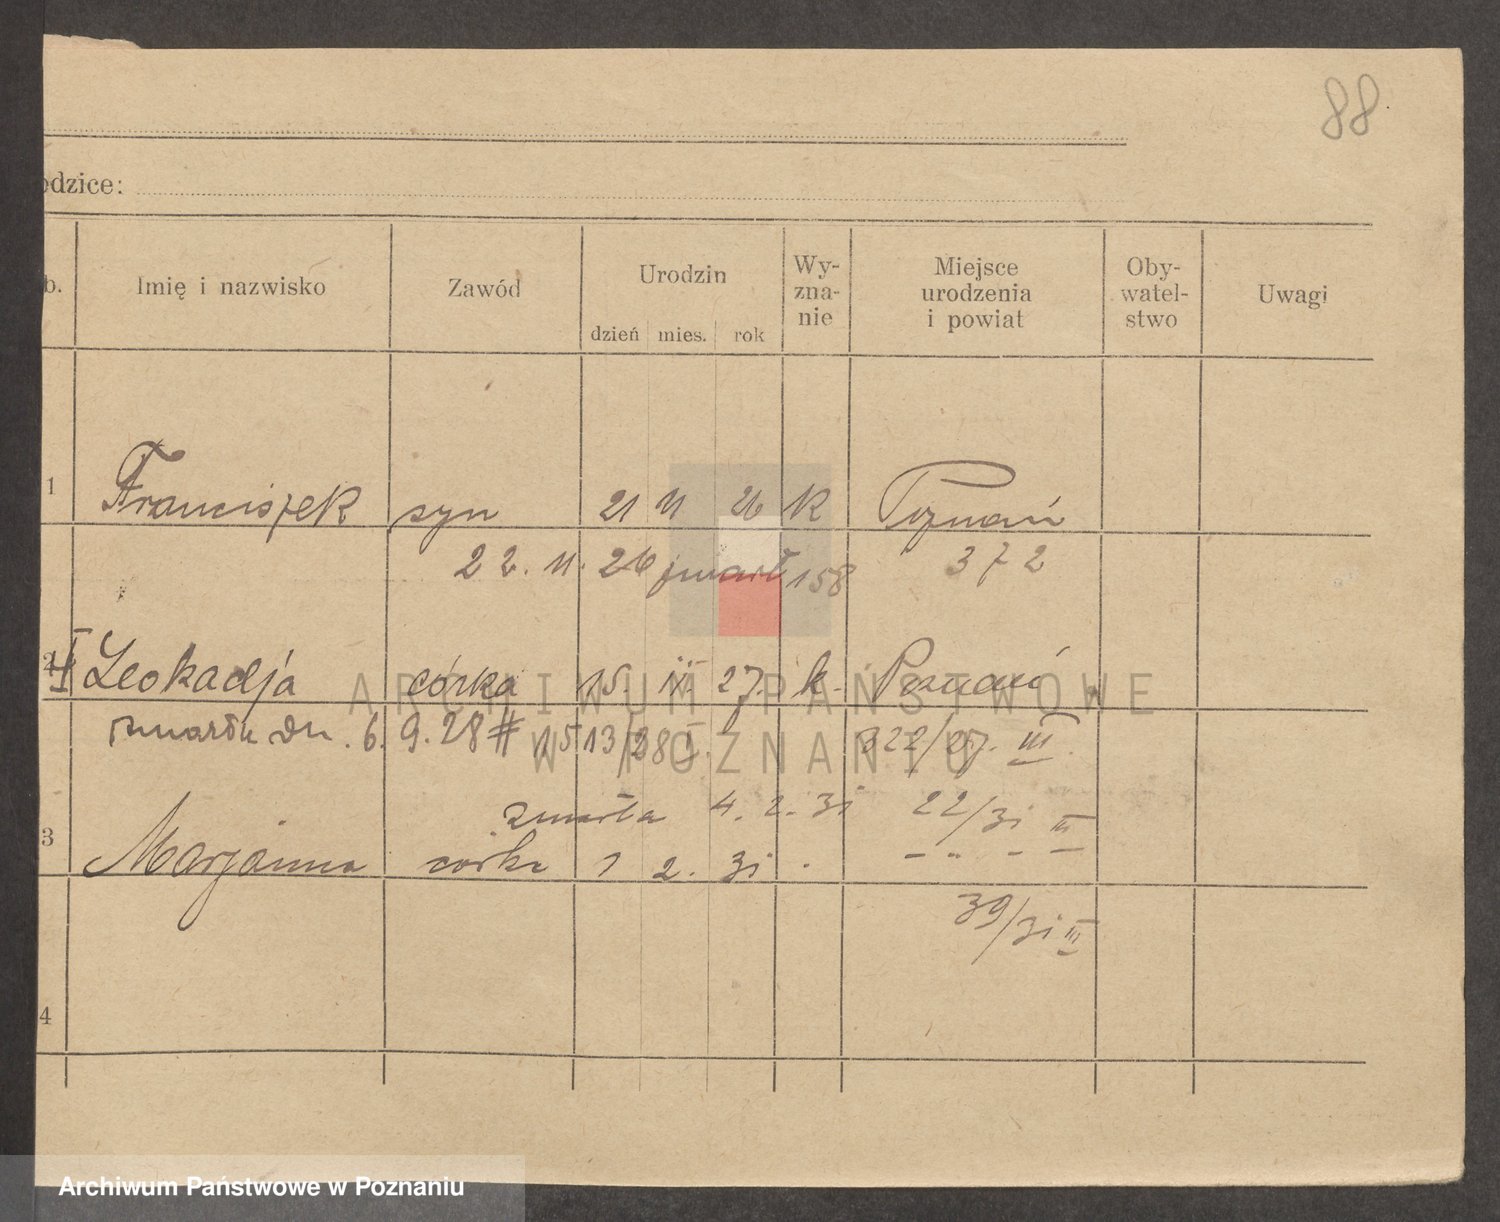 88
odzice:
b. Imię i nazwisko Zawód Urodzin dzień mies. rok Wy-zna-nie Miejsce urodzenia i powiat Oby-watel-stwo Uwagi
1 Franciszek syn 21 11 26 k Poznań
22. 11. 26 zmarł 158 372
2 Leokadja córka 15. III 27. k. Poznań
zmarła dn. 6. 9. 28 # 1513/28 I. 322/27. III.
zmarła 4. 2. 31 22/31 III
3 Marjanna córka 1 2. 31 . - „ - -
39/31 III
4
ARCHIWUM PAŃSTWOWE
W POZNANIU
Archiwum Państwowe w Poznaniu